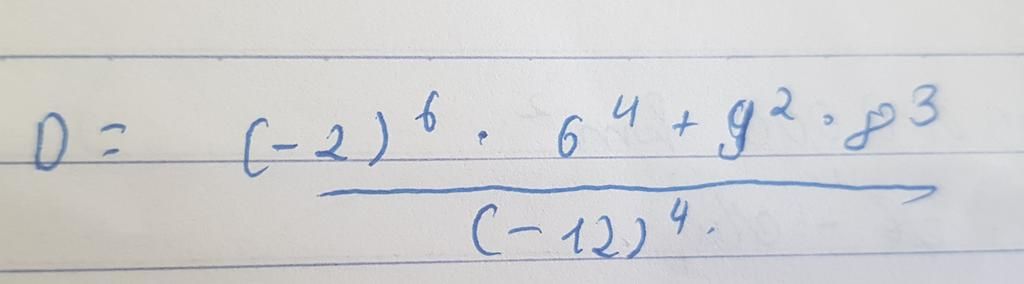 D = (-2)⁶ · 6⁴ + 9² · 8³
(-12)⁴.